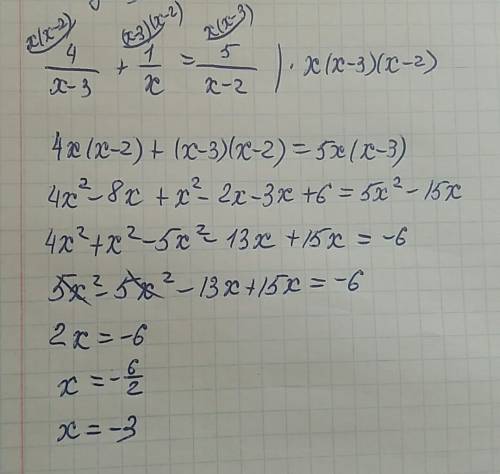 x(x-2) (x-3)(x-2) x(x-3)
4/(x-3) + 1/x = 5/(x-2) | · x(x-3)(x-2)
4x(x-2)+(x-3)(x-2)=5x(x-3)
4x²-8x+x²-2x-3x+6=5x²-15x
4x²+x²-5x²-13x+15x=-6
5x²-5x²-13x+15x=-6
2x=-6
x=-6/2
x=-3